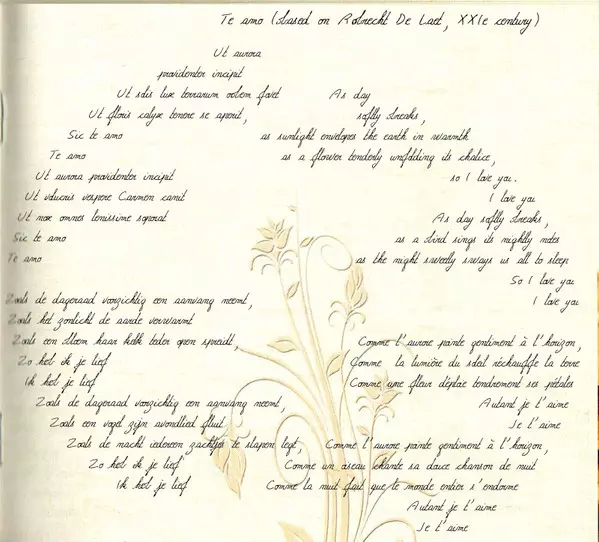 Te amo (based on Robrecht De Laet, XXIe century)
Ut aurora
providenter incipit
Ut solis lux terrarum orbem favet
Ut floris calyx tenere se aperit,
Sic te amo
Te amo
Ut aurora providenter incipit
Ut volucris vespere Carmen canit
Ut nox omnes lenissime soporat
Sic te amo
Te amo
As day
softly streaks,
as sunlight envelopes the earth in warmth
as a flower tenderly unfolding its chalice,
so I love you.
I love you
As day softly streaks,
as a bird sings its nightly notes
as the night sweetly sways us all to sleep
So I love you
I love you
Zoals de dageraad voorzichtig een aanvang neemt,
Zoals het zonlicht de aarde verwarmt
Zoals een bloem haar kelk teder open spreidt,
Zo heb ik je lief
Ik heb je lief
Zoals de dageraad voorzichtig een aanvang neemt,
Zoals een vogel zijn avondlied fluit
Zoals de nacht iedereen zachtjes te slapen legt,
Zo heb ik je lief
Ik heb je lief
Comme l'aurore pointe gentiment à l'horizon,
Comme la lumière du soleil réchauffe la terre
Comme une fleur déploie tendrement ses pétales
Autant je t'aime
Je t'aime
Comme l'aurore pointe gentiment à l'horizon,
Comme un oiseau chante sa douce chanson de nuit
Comme la nuit fait que le monde entier s'endorme
Autant je t'aime
Je t'aime